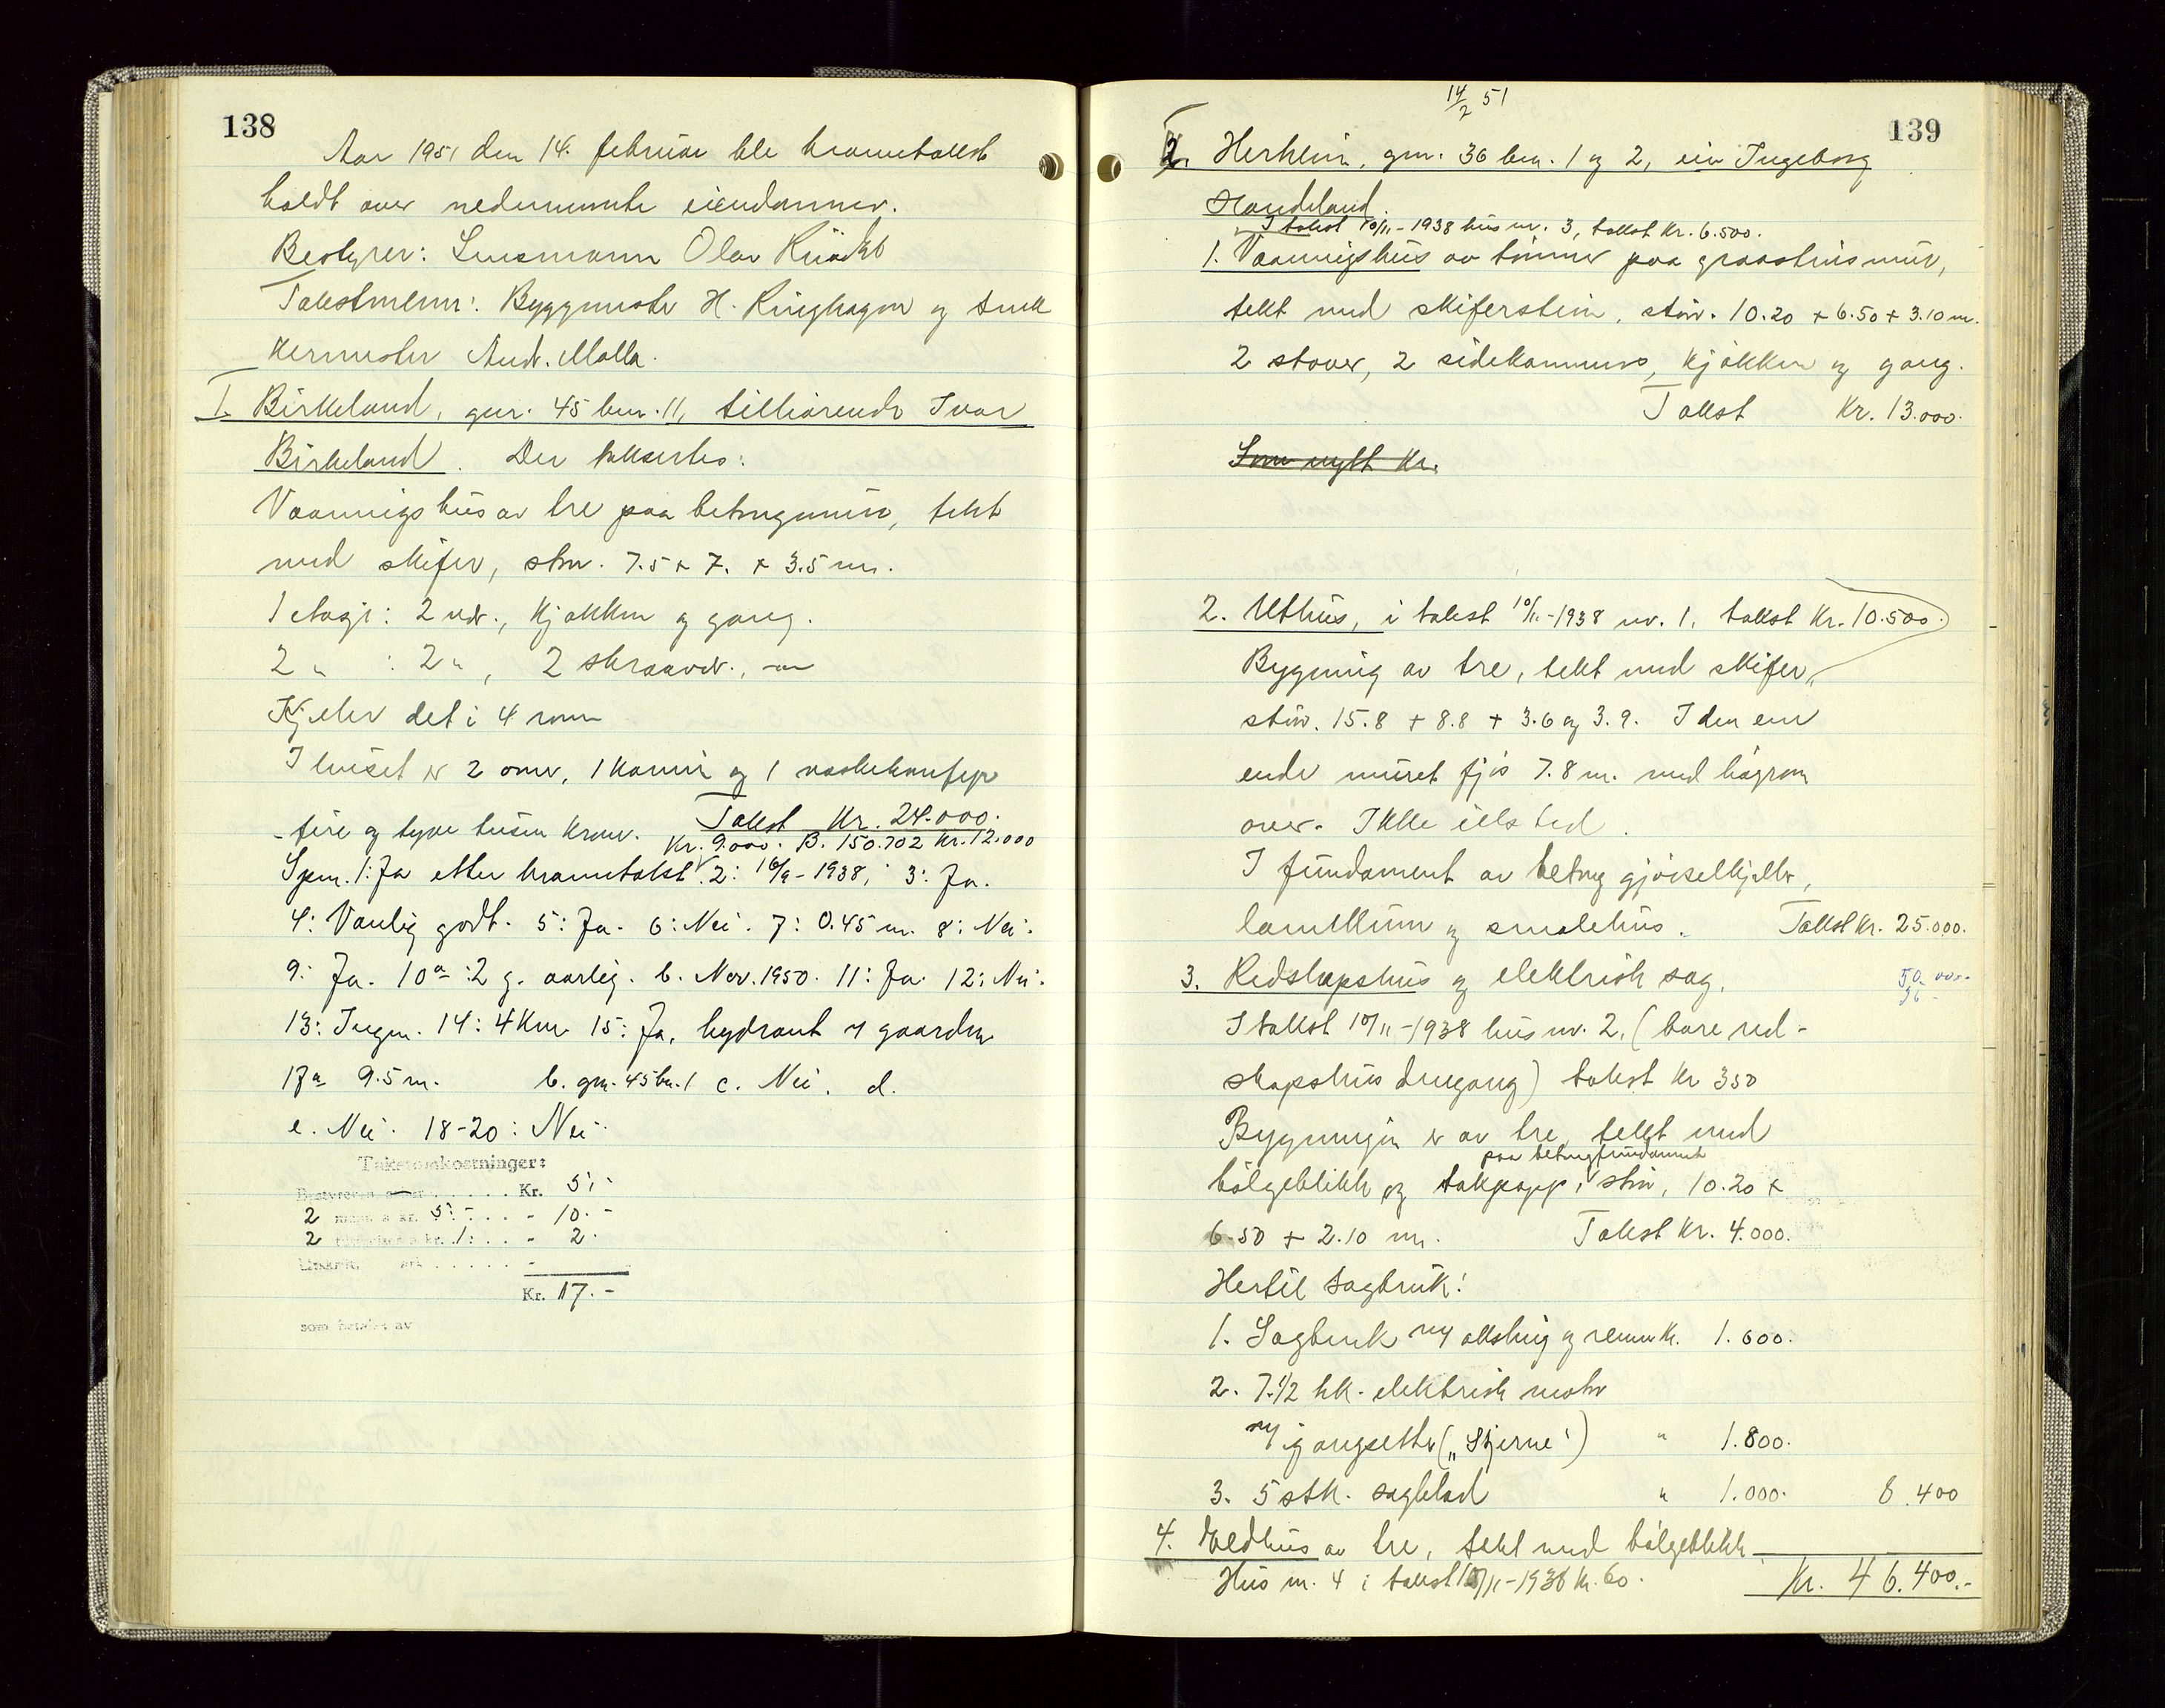 138
Aar 1951 den 14. februar ble branntakst
holdt over nedennemnte eiendommer.
Bestyrer: Lensmann Olav
Takstmenn: Byggmester H. Ringhagen og snek
kermester Andr. Molla.
I. Birkeland, gnr. 45 bnr. 11, tilhørende Ivar
Birkeland. Der takseertes:
Vaaningshus av tre paa betongmur, tekt
med skifer, stør. 7.5 x 7. x 3.5 m.
1 etasje: 2 vær., kjøkken og gang.
2 " : 2 ", 2 skraavær.,
Kjeller delt i 4 rom
I huset er 2 ovner, 1 kamin og 1
Takst Kr. 24.000.
- fire og tyve tusen kroner.
Kr. 9.000. B. 150.702 Kr. 12.000
Spm. 1: Ja etter branntakst 2: 16/9-1938, 3: Ja.
4: Vanlig godt. 5: Ja. 6: Nei. 7: 0.45 m. 8: Nei.
9: Ja. 10a: 2 g. aarlig. b. Nov. 1950. 11: Ja 12: Nei.
13: Ingen. 14: 4 Km. 15: Ja, hydrant v/ gaarden
17a 9.5 m. b. gnr. 45 bn. 1 c. Nei. d.
e. Nei. 18-20: Nei.
Takstomkostninger:
Bestyreren . . . . . Kr. 5.-
2 menn a kr. 5.- . . . - 10.-
2 a kr. 1: . . - 2.
Utskrift, ark . . . . . -
Kr. 17.-
som betales av
14/2 51
139
2. Herheim, gnr. 36 bnr. 1 og 2, eier Ingeborg
Handeland.
I takst 10/11-1938 hus nr. 3, takst Kr. 6.500.
1. Vaaningshus av tømmer paa graasteinsmur,
tekt med skiferstein, stør. 10.20 x 6.50 x 3.10 m.
2 stover, 2 sidekammers, kjøkken og gang.
Takst Kr. 13.000.
Som nytt Kr.
2. Uthus, i takst 10/11-1938 nr. 1, takst Kr. 10.500.
Bygning av tre, tekt med skifer,
stør. 15.8 x 8.8 x 3.6 og 3.9. I den ene
ende muret fjøs 7.8 m. med høyrom
over. Ikke ildsted.
I fundament av betong gjødselkjeller,
landkum og smalehus. Takst Kr. 25.000.
3. Redskapshus og elektrisk sag.
50.000.-
36 -
I takst 10/11-1938 hus nr. 2, (bare red-
skapshus dengang) takst Kr 350
Bygningen er av tre, tekt med
paa betongfundament
bølgeblikk og takpapp, stør. 10.20 x
6.50 x 2.10 m. Takst Kr. 4.000.
Hertil sagbruk:
1. Sagbenk m/ aksling og remmer Kr. 1.600.
2. 7.1/2 hk. elektrisk motor
m/ igangsetter („Stjerne") " 1.800.
3. 5 stk. sagblad " 1.000. 8.400
4. Eldhus av tre, tekt med bølgeblikk
Hus nr. 4 i takst 10/11-1938 Kr. 60.
Kr. 46.400.-